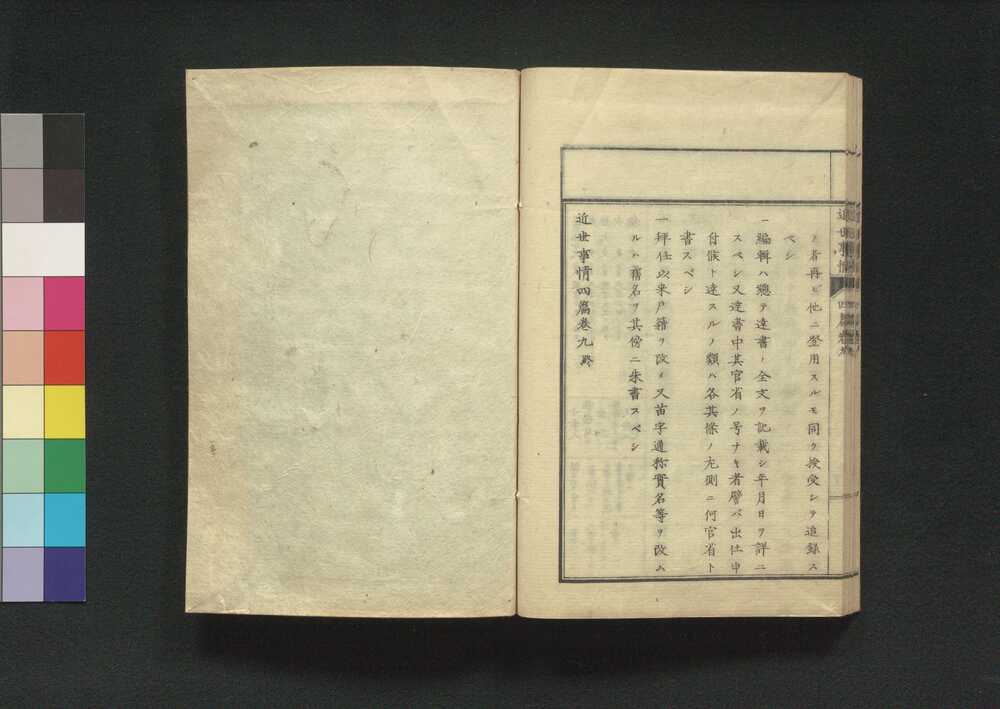 ノ者再ビ他ニ登用スルモ同ク授受シテ追録ス
ベシ
一編輯ハ總テ達書ノ全文ヲ記載シ年月日ヲ詳ニ
スベシ又達書中其官省ノ号ナキ者譬バ出仕申
付候ト達スルノ類ハ各其條ノ左側ニ何官省ト
書スベシ
一拜仕以来戸籍ヲ改メ又苗字通称實名等ヲ改ム
ルハ舊名ヲ其傍ニ朱書スベシ
近世事情四篇卷九終